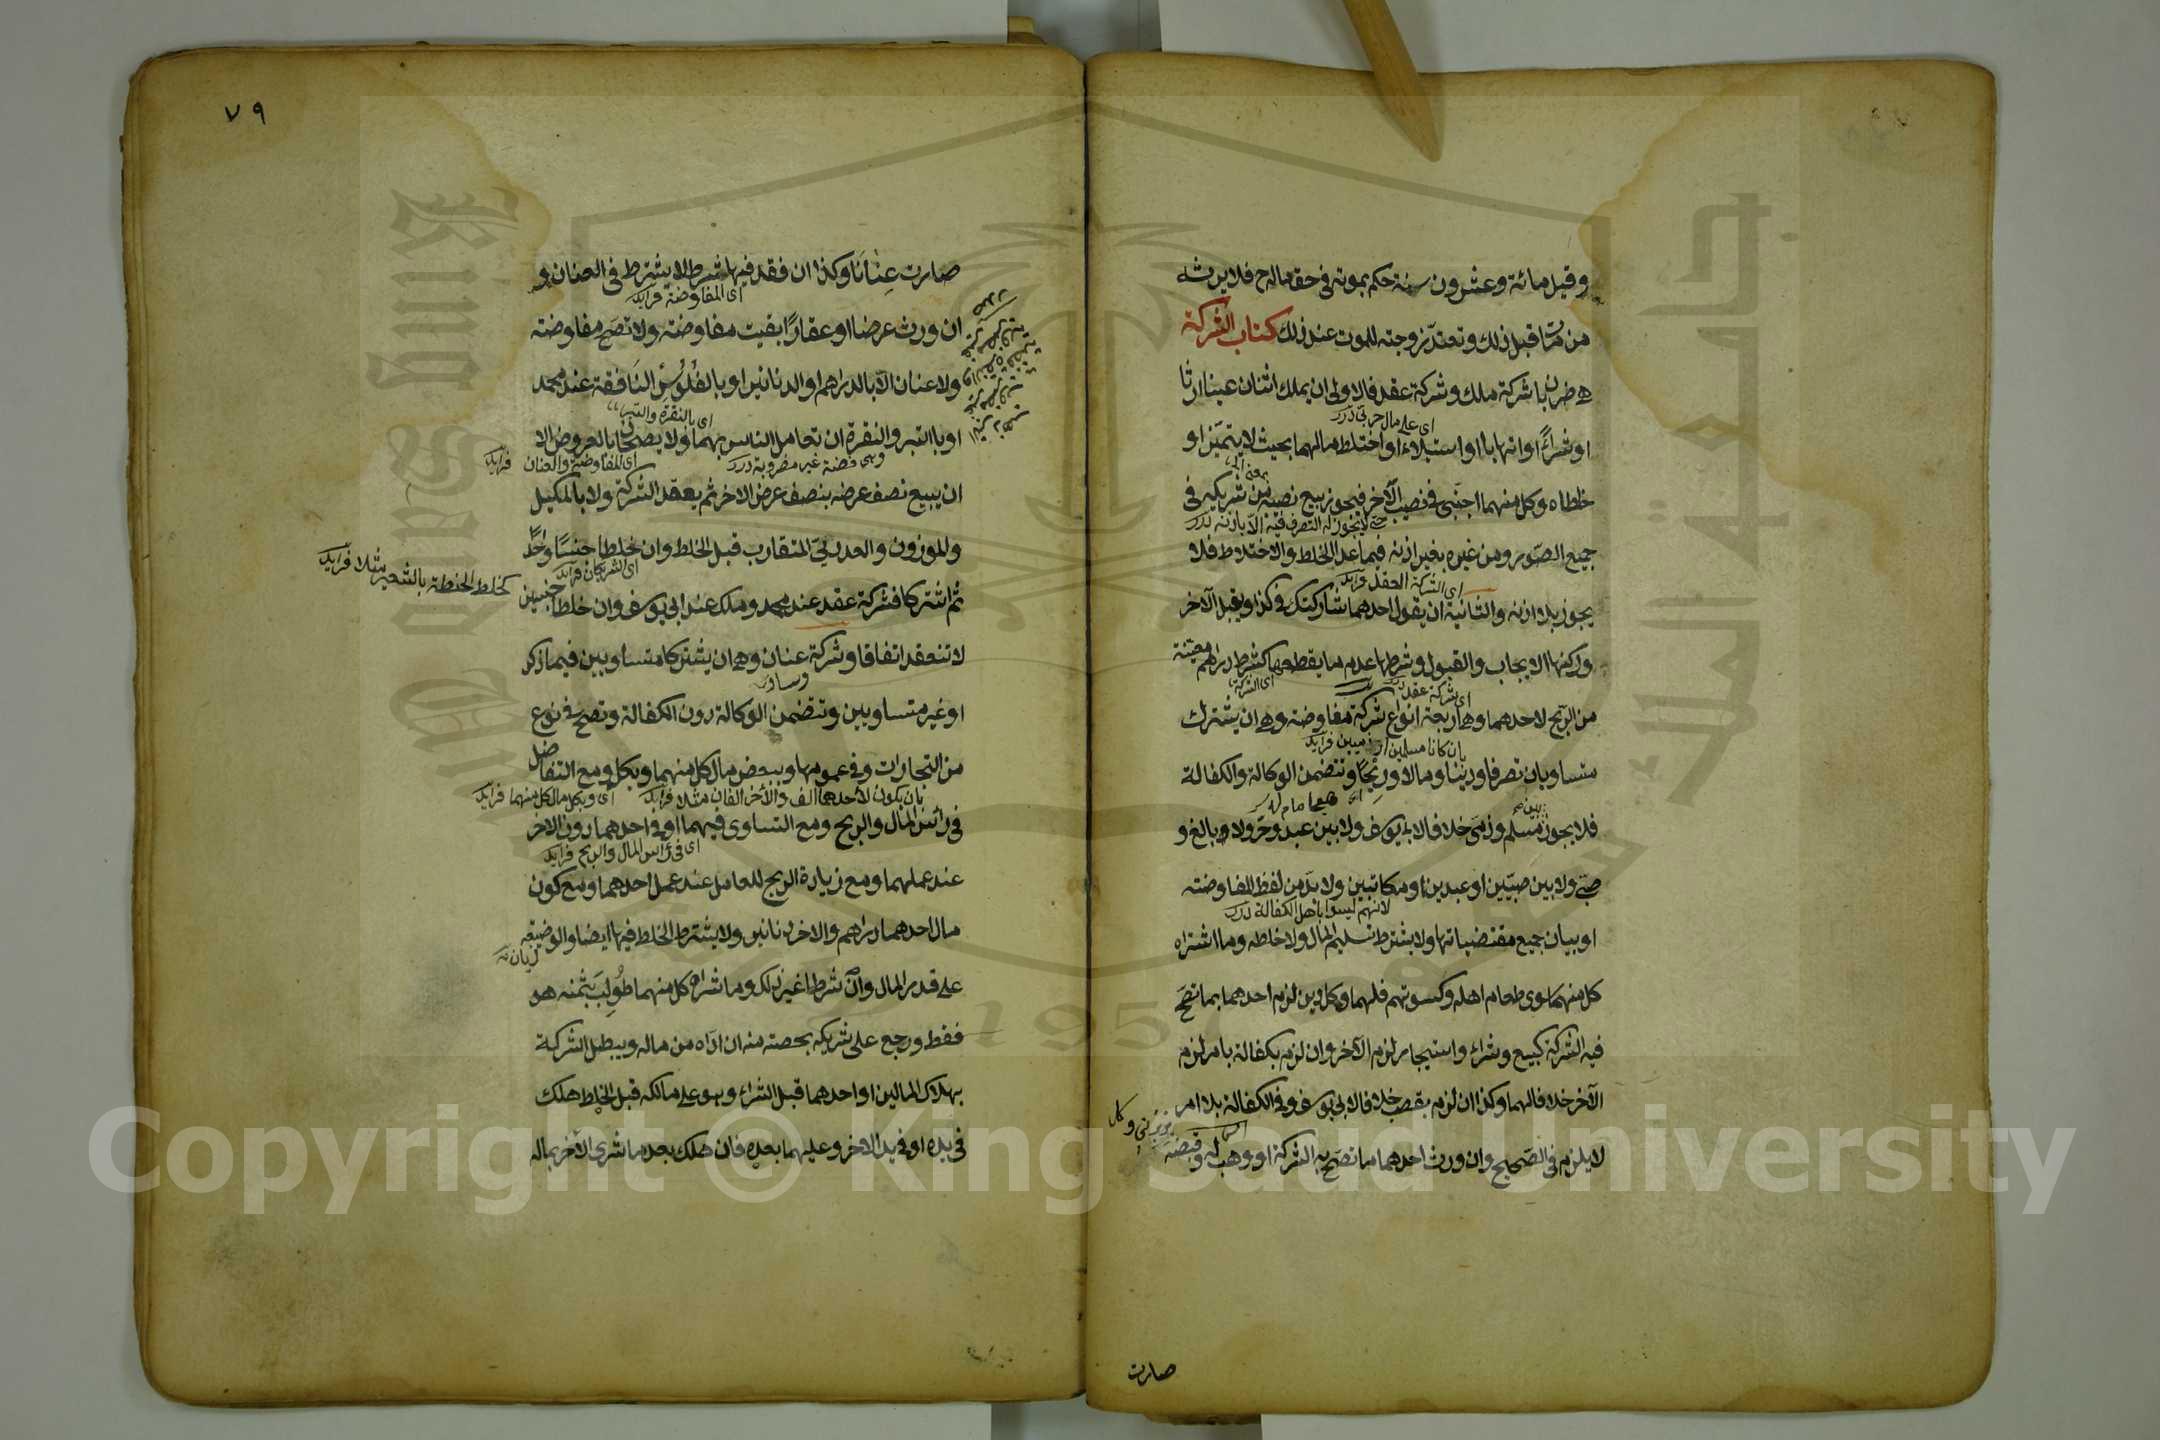 وقيل مائة وعشرون سنة حكم بموته فى حق ماله ح فلا يرثه
من مات قبل ذلك وتعتد زوجته للموت عند ذلك كتاب الشركة
هى ضربان شركة ملك وشركة عقد فالاولى ان يملك اثنان عينا ارثا
اى على مال حربى درر
او شراءً او اتهابا او استيلاء او اختلط مالهما بحيث لا يتميز او
خلطاه وكل منهما اجنبى فى نصيب الآخر فيجوز بيع نصيبه من شريكه فى
حتى لا يجوز له التصرف فيه الا باذنه درر
جميع الصور ومن غيره بغير اذنه فيما عدا الخلط والاختلاط فلا
اى الشركة العقد فرايد
يجوز بلا اذنه والثانية ان يقول احدهما شاركتك فى كذا ويقبل الآخر
وركنها الايجاب والقبول وشرطها عدم ما يقطعها كشرط دراهم معينة
اى شركة عقد درر
اى الشركة
من الربح لاحدهما وهى اربعة انواع شركة مفاوضة وهى ان يشترك
بان كانا مسلمين او ذميين فرايد
متساويان تصرفا ودينا ومالا وربحا وتتضمن الوكالة والكفالة
فلا يجوز بين مسلم وذمى خلافا لابى يوسف ولا بين عبد وحر ولا بالغ و
صبى ولا بين صبيين او عبدين او مكاتبين ولا بد من لفظ المفاوضته
لانهم ليسوا باهل الكفالة درر
او بيان جميع مقتضياتها ولا يشترط تسليم المال ولا خلطه وما اشتراه
كل منهما سوى طعام اهله وكسوتهم فلهما وكل دين لزم احدهما بما تصح
فيه الشركة كبيع وشراء واستيجار لزم الآخر وان لزم بكفالة بامر لزم
الآخر خلافا لهما وكذا ان لزم بغصب خلافا لابى يوسف وفى الكفالة بلا امر
لا يلزم فى الصحيح وان ورث احدهما ما تصح به الشركة او وهب له وقبضه
صارت
٧٩
صارت عِنَانا وكذا ان فقد فيها شرط لا يشترط فى العنان و
اى المفاوضة فرايد
ان ورث عرضا او عقارًا بقيت مفاوضة ولا تصح مفاوضته
ولا عنان الا بالدراهم او الدنانير او بالفُلُوُسِ النَافقة عند محمد
اى بالنقرة والتبر
او بالتبر والنقرة ان تعامل الناس بهما ولا يصحان بالعروض الا
وهى فضة غير مضروبة درر
اى المفاوضة والعنان فرايد
ان يبيع نصف عرضه بنصف عرض الاخر ثم يعقد الشركة ولا بالمكيل
والموزون والعددى المتقارب قبل الخلط وان خلطا جنسًا واحدًا
اى الشريكان فرايد
كخلط الحنطة بالشعير مثلا فرايد
ثم اشتركا فشركة عقد عند محمد وملك عند ابى يوسف وان خلطا جنسين
لا تنعقد اتفاقا وشركة عنان وهى ان يشتركا متساويين فيما ذكر
او غير متساويين وتتضمن الوكالة دون الكفالة وتصح فى نوع
من التجارات وفى عمومها وببعض مال كل منهما وبكله ومع التفاضل
بان يكون لاحدهما الف والآخر الفان مثلا فرايد
اى وبكل مال كل منهما فرايد
فى رائس المال والربح ومع التساوى فيهما او فى احدهما دون الاخر
اى فى رائس المال والربح فرايد
عند عملهما ومع زيادة الربح للعامل عند عمل احدهما ومع كون
مال احدهما دراهم والاخر دنانير ولا يشترط الخلط فيها ايضا والوضيعة
على قدر المال وان شرطا غير ذلك وما شراه كل منهما طُولِبَ بثمنه هو
فقط ورجع على شريكه بحصته منه ان ادّاه من ماله ويبطل الشركة
بهلاك المالين او احدهما قبل الشراء وهو على مالكه قبل الخلط هلك
فى يده او فى يد الاخر وعليهما بعده فان هلك بعد ما شرى الآخر بماله
Copyright © King Saud University
King Saud University
1957